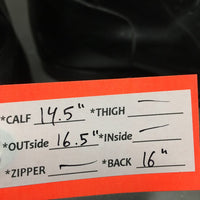 *CALF 14.5" *THIGH —
*OUTside 16.5" *INside —
*ZIPPER — *BACK 16"